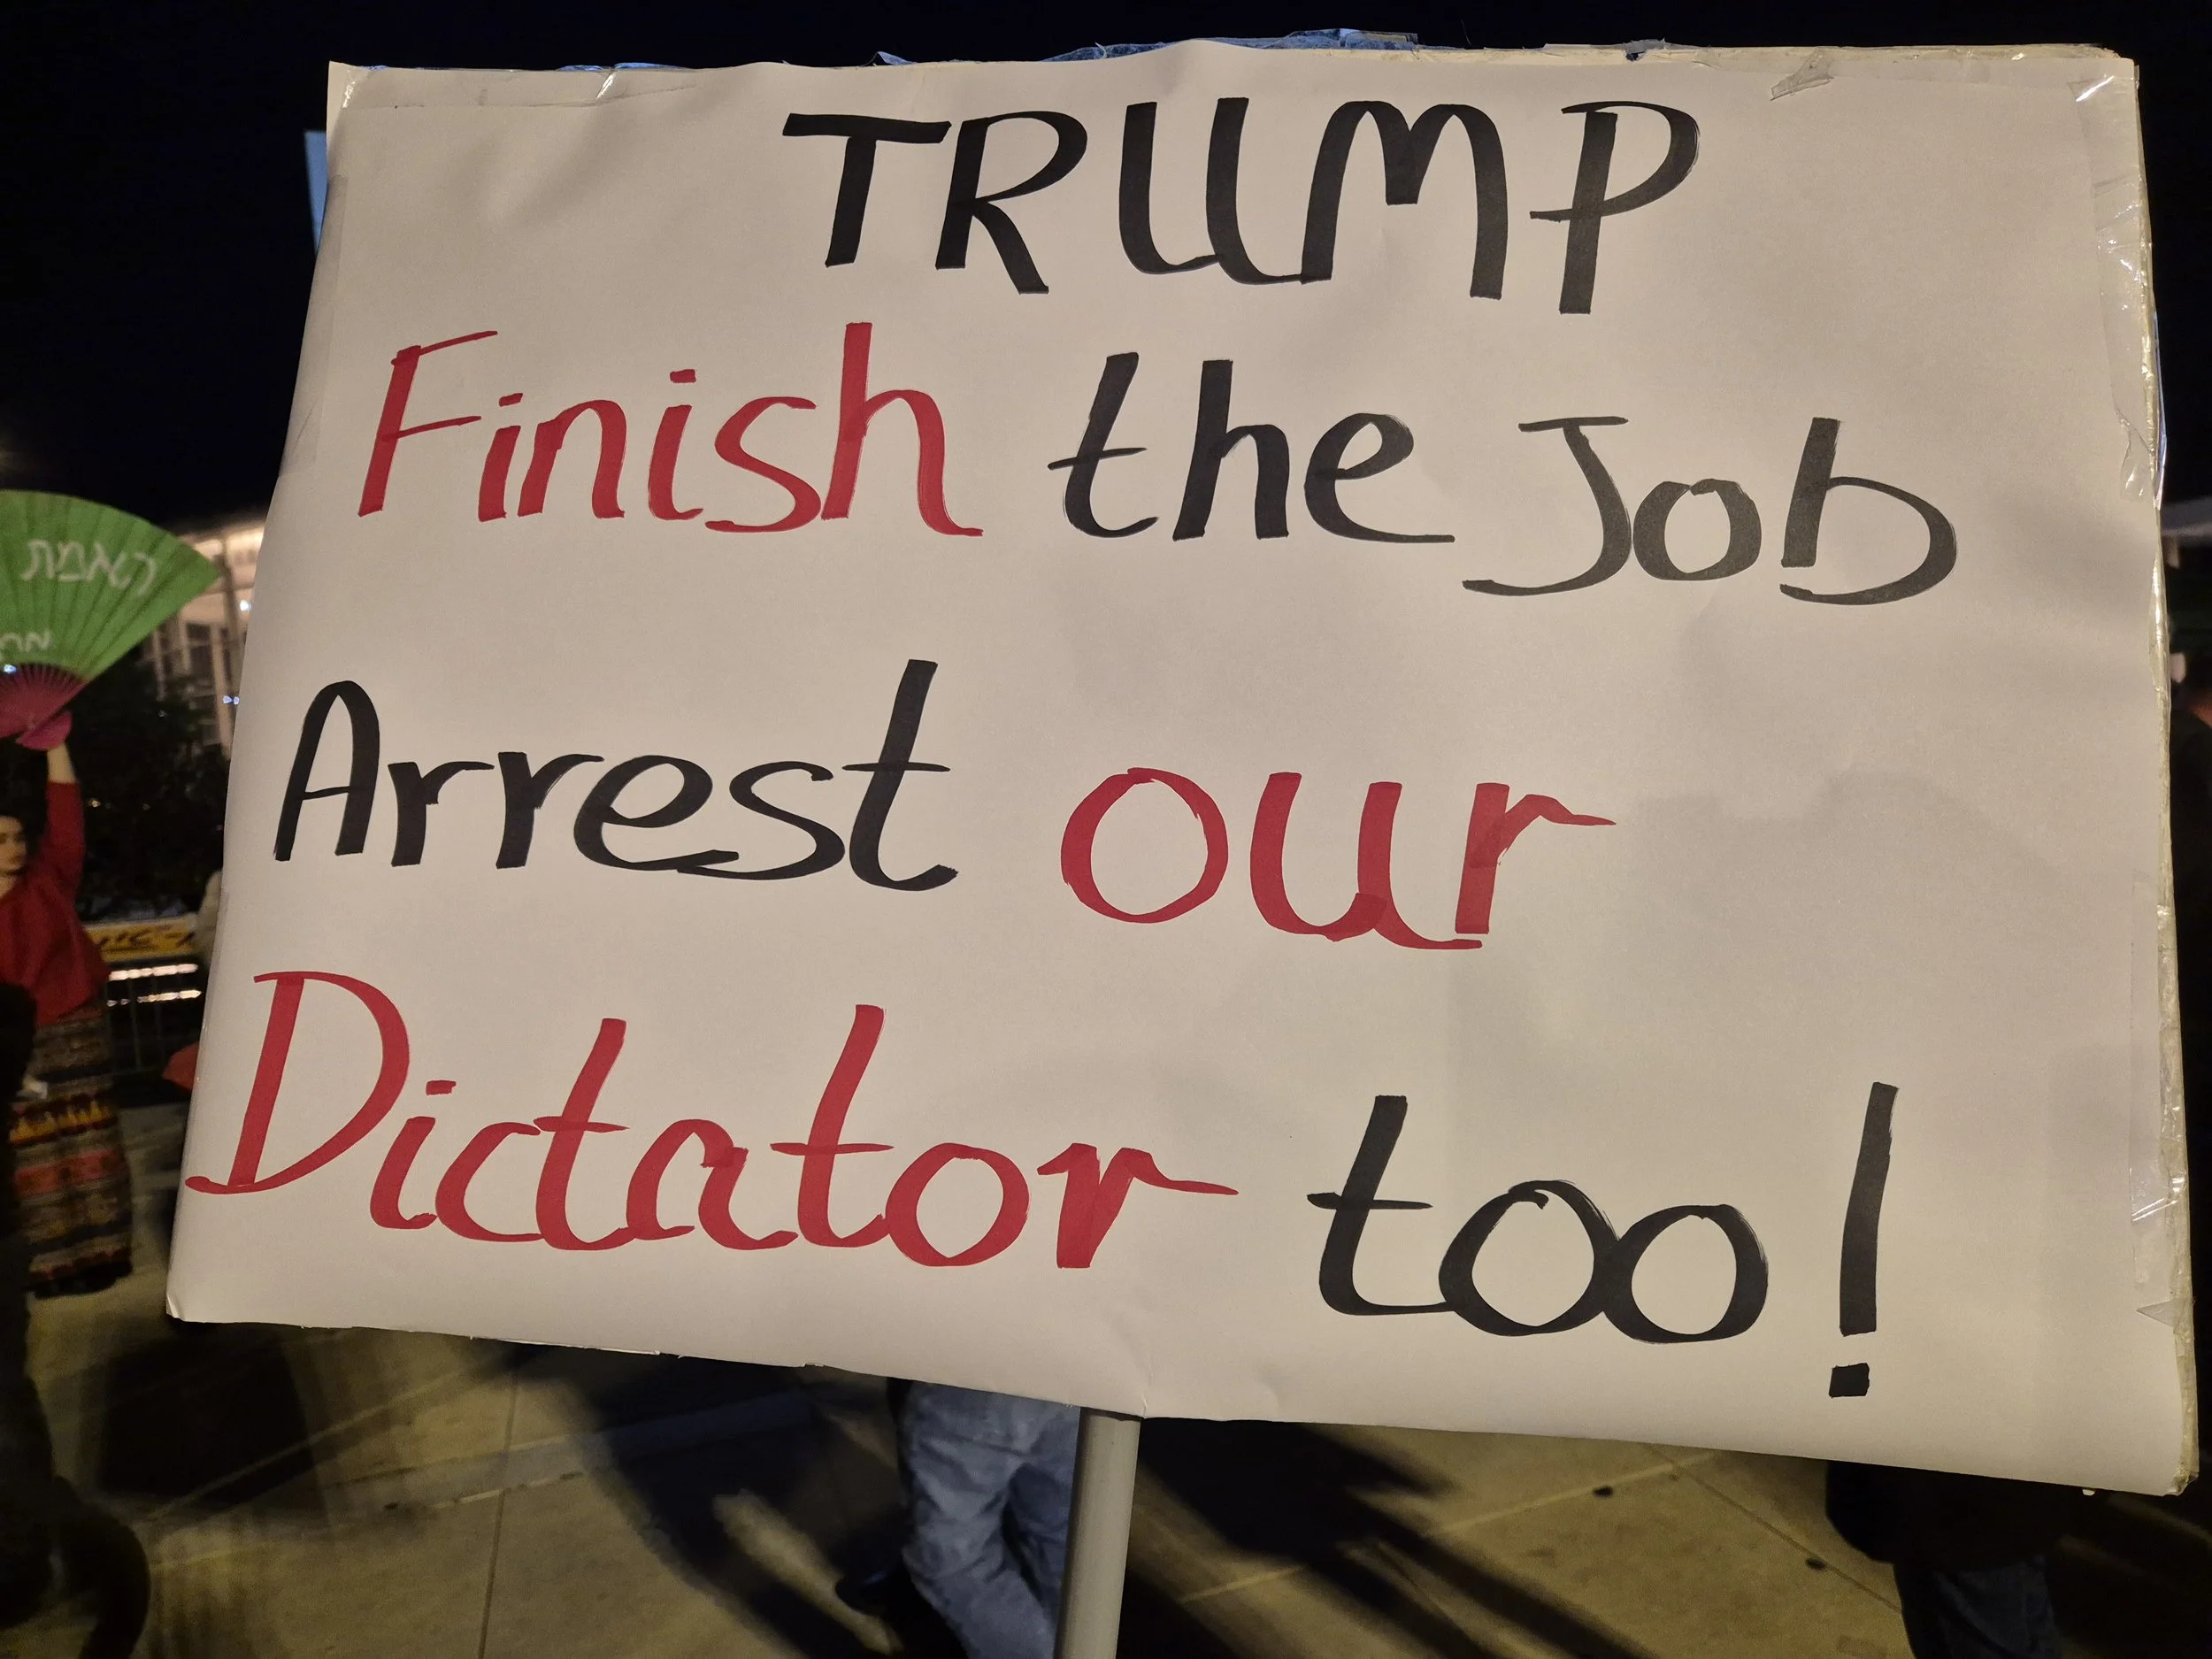 TRUMP
Finish the Job
Arrest our
Dictator too!